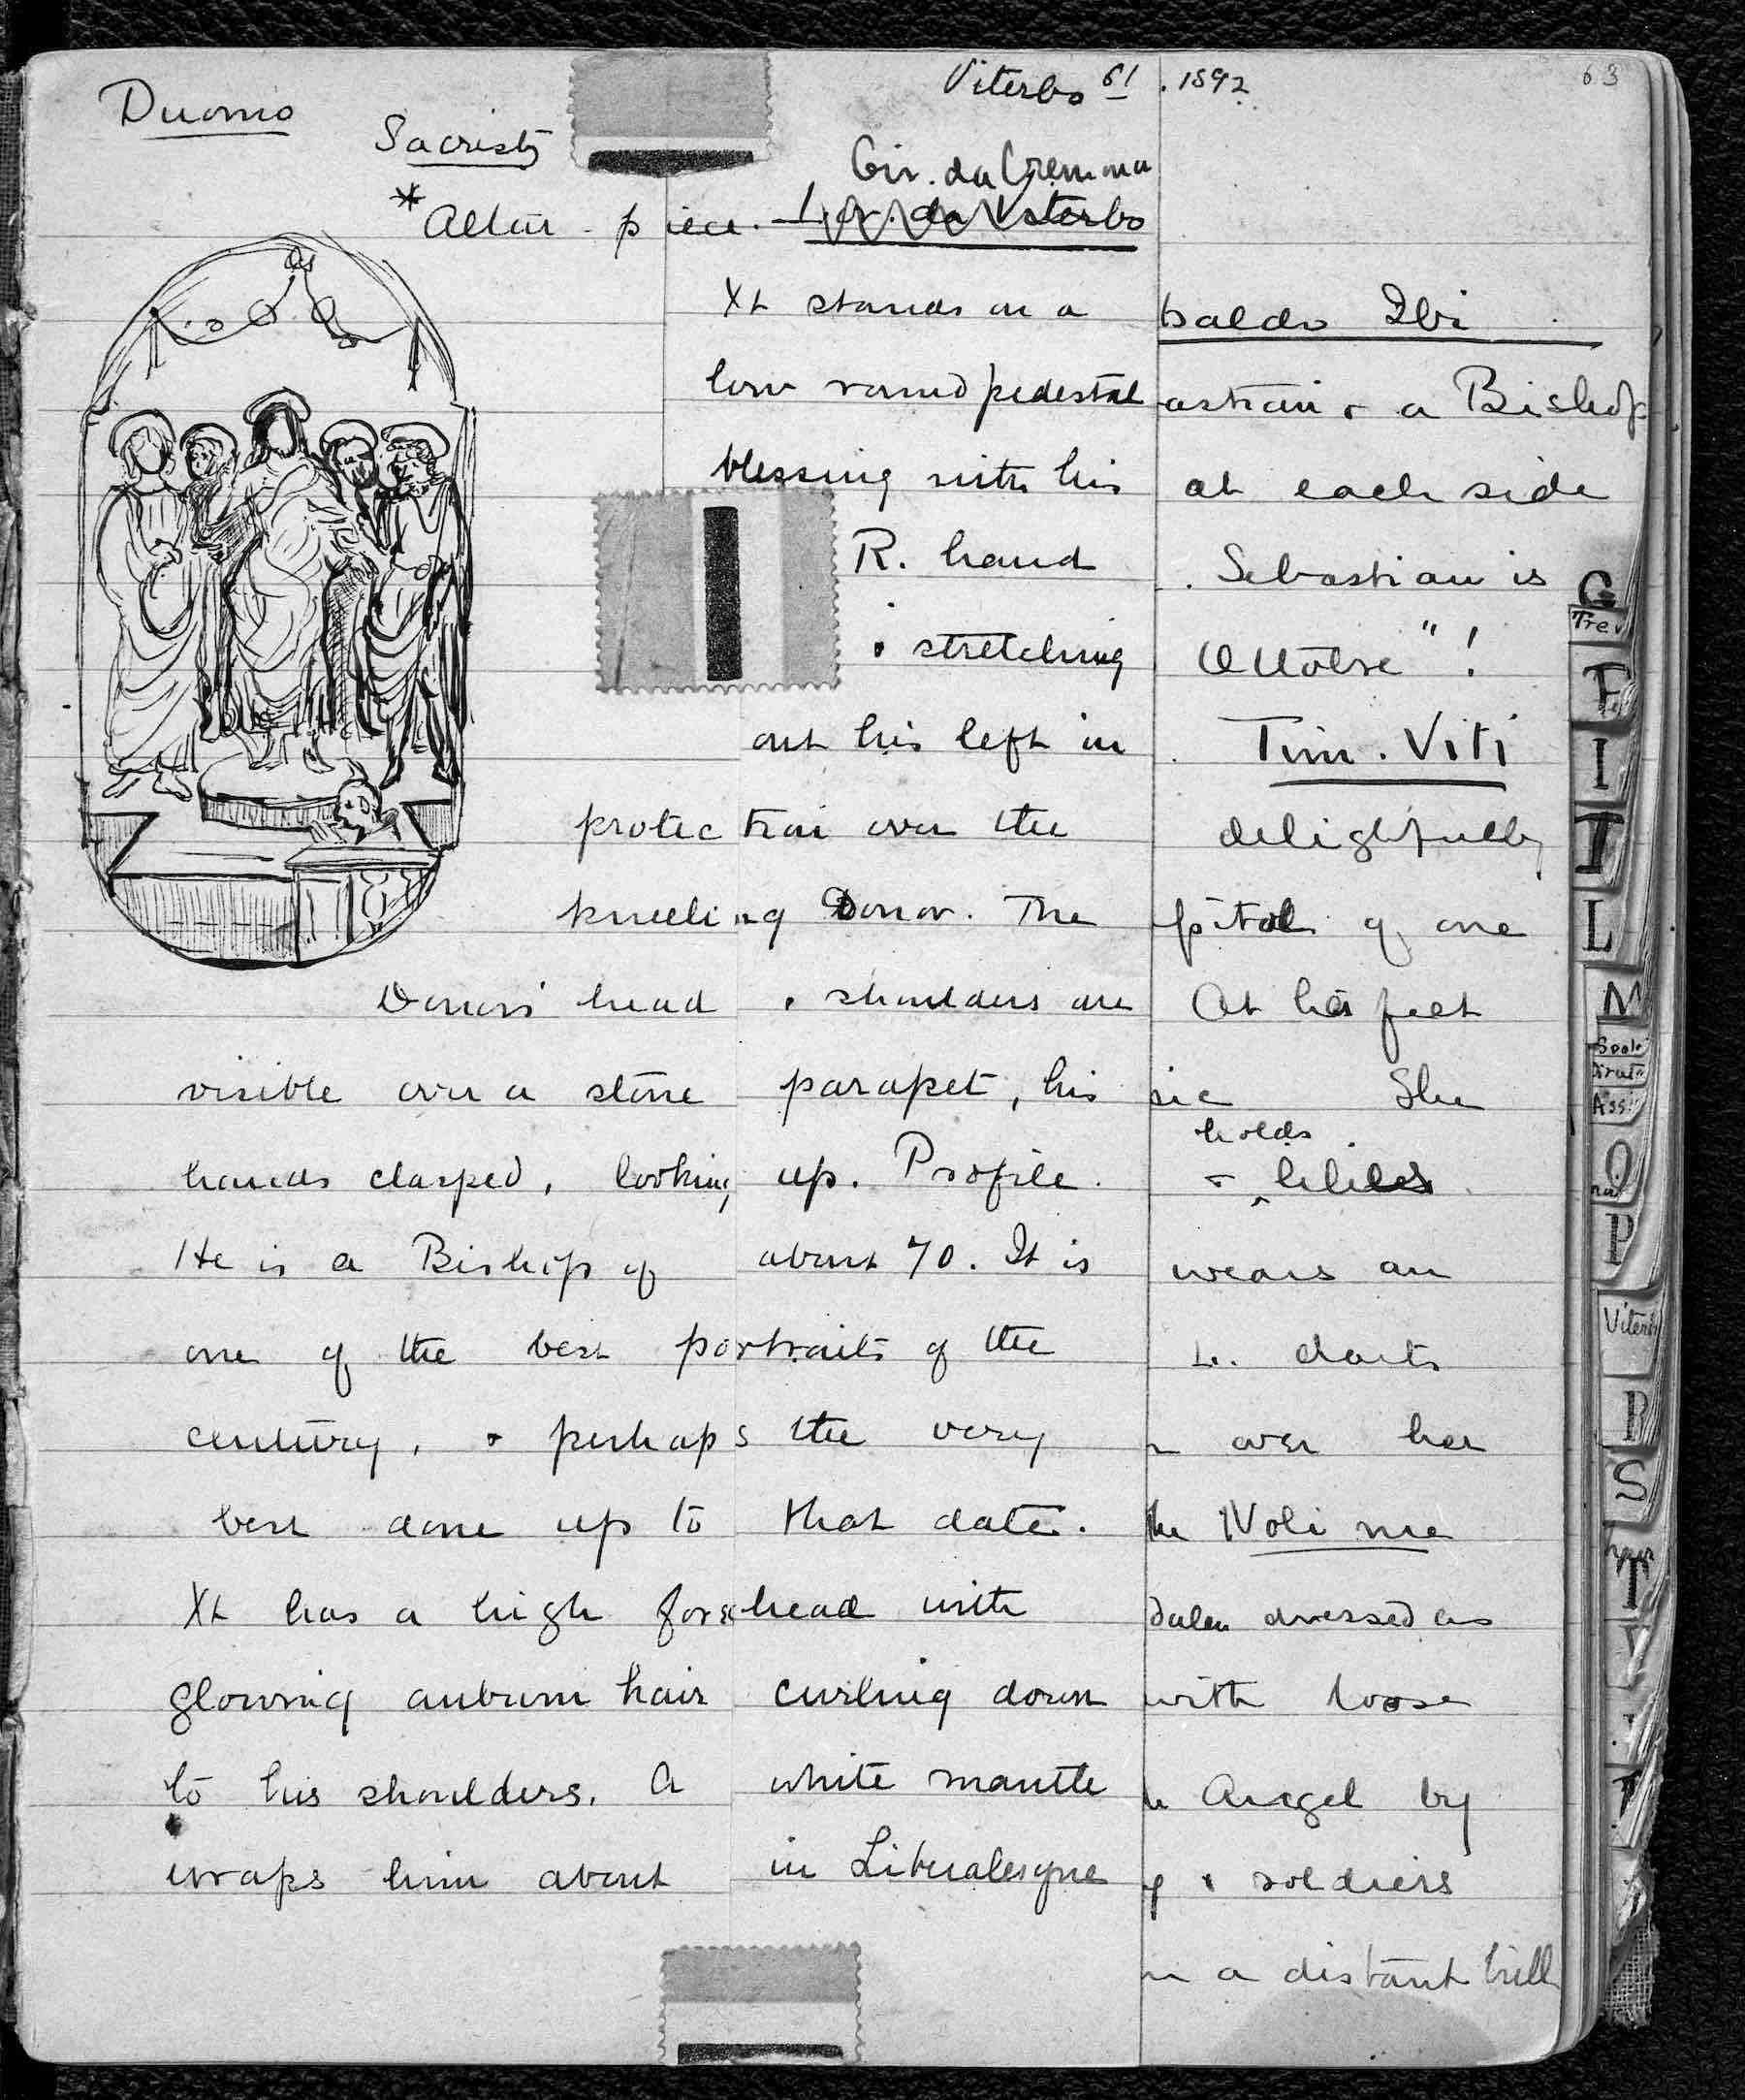 Viterbo 61 . 1892
63
Duomo
Sacristy
Gir. da Cremona
* Altar-piece. L. da Viterbo
Xt stands on a
low round pedestal
blessing with his
R. hand
& stretching
out his left in
protection over the
kneeling Donor. The
Donors' head & shoulders are
visible over a stone parapet, his
hands clasped, looking up. Profile.
He is a Bishop of about 70. It is
one of the best portraits of the
century, & perhaps the very
best done up to that date.
Xt has a high forehead with
glowing auburn hair curling down
to his shoulders. A white mantle
wraps him about in Liberalesque
baldo Ibi
astian & a Bishop
at each side
. Sebastian is
Ottobre" !
Tim. Viti
delightfully
pital of one
At his feet
sic She
holds
& lilies
wears an
L. darts
n over her
the Noli me
dalen dressed as
with loose
Angel by
g & soldiers
n a distant hill
G
Trev
F
I
I
L
M
Spole
Assi
O
P
Viterb
R
S
T
V